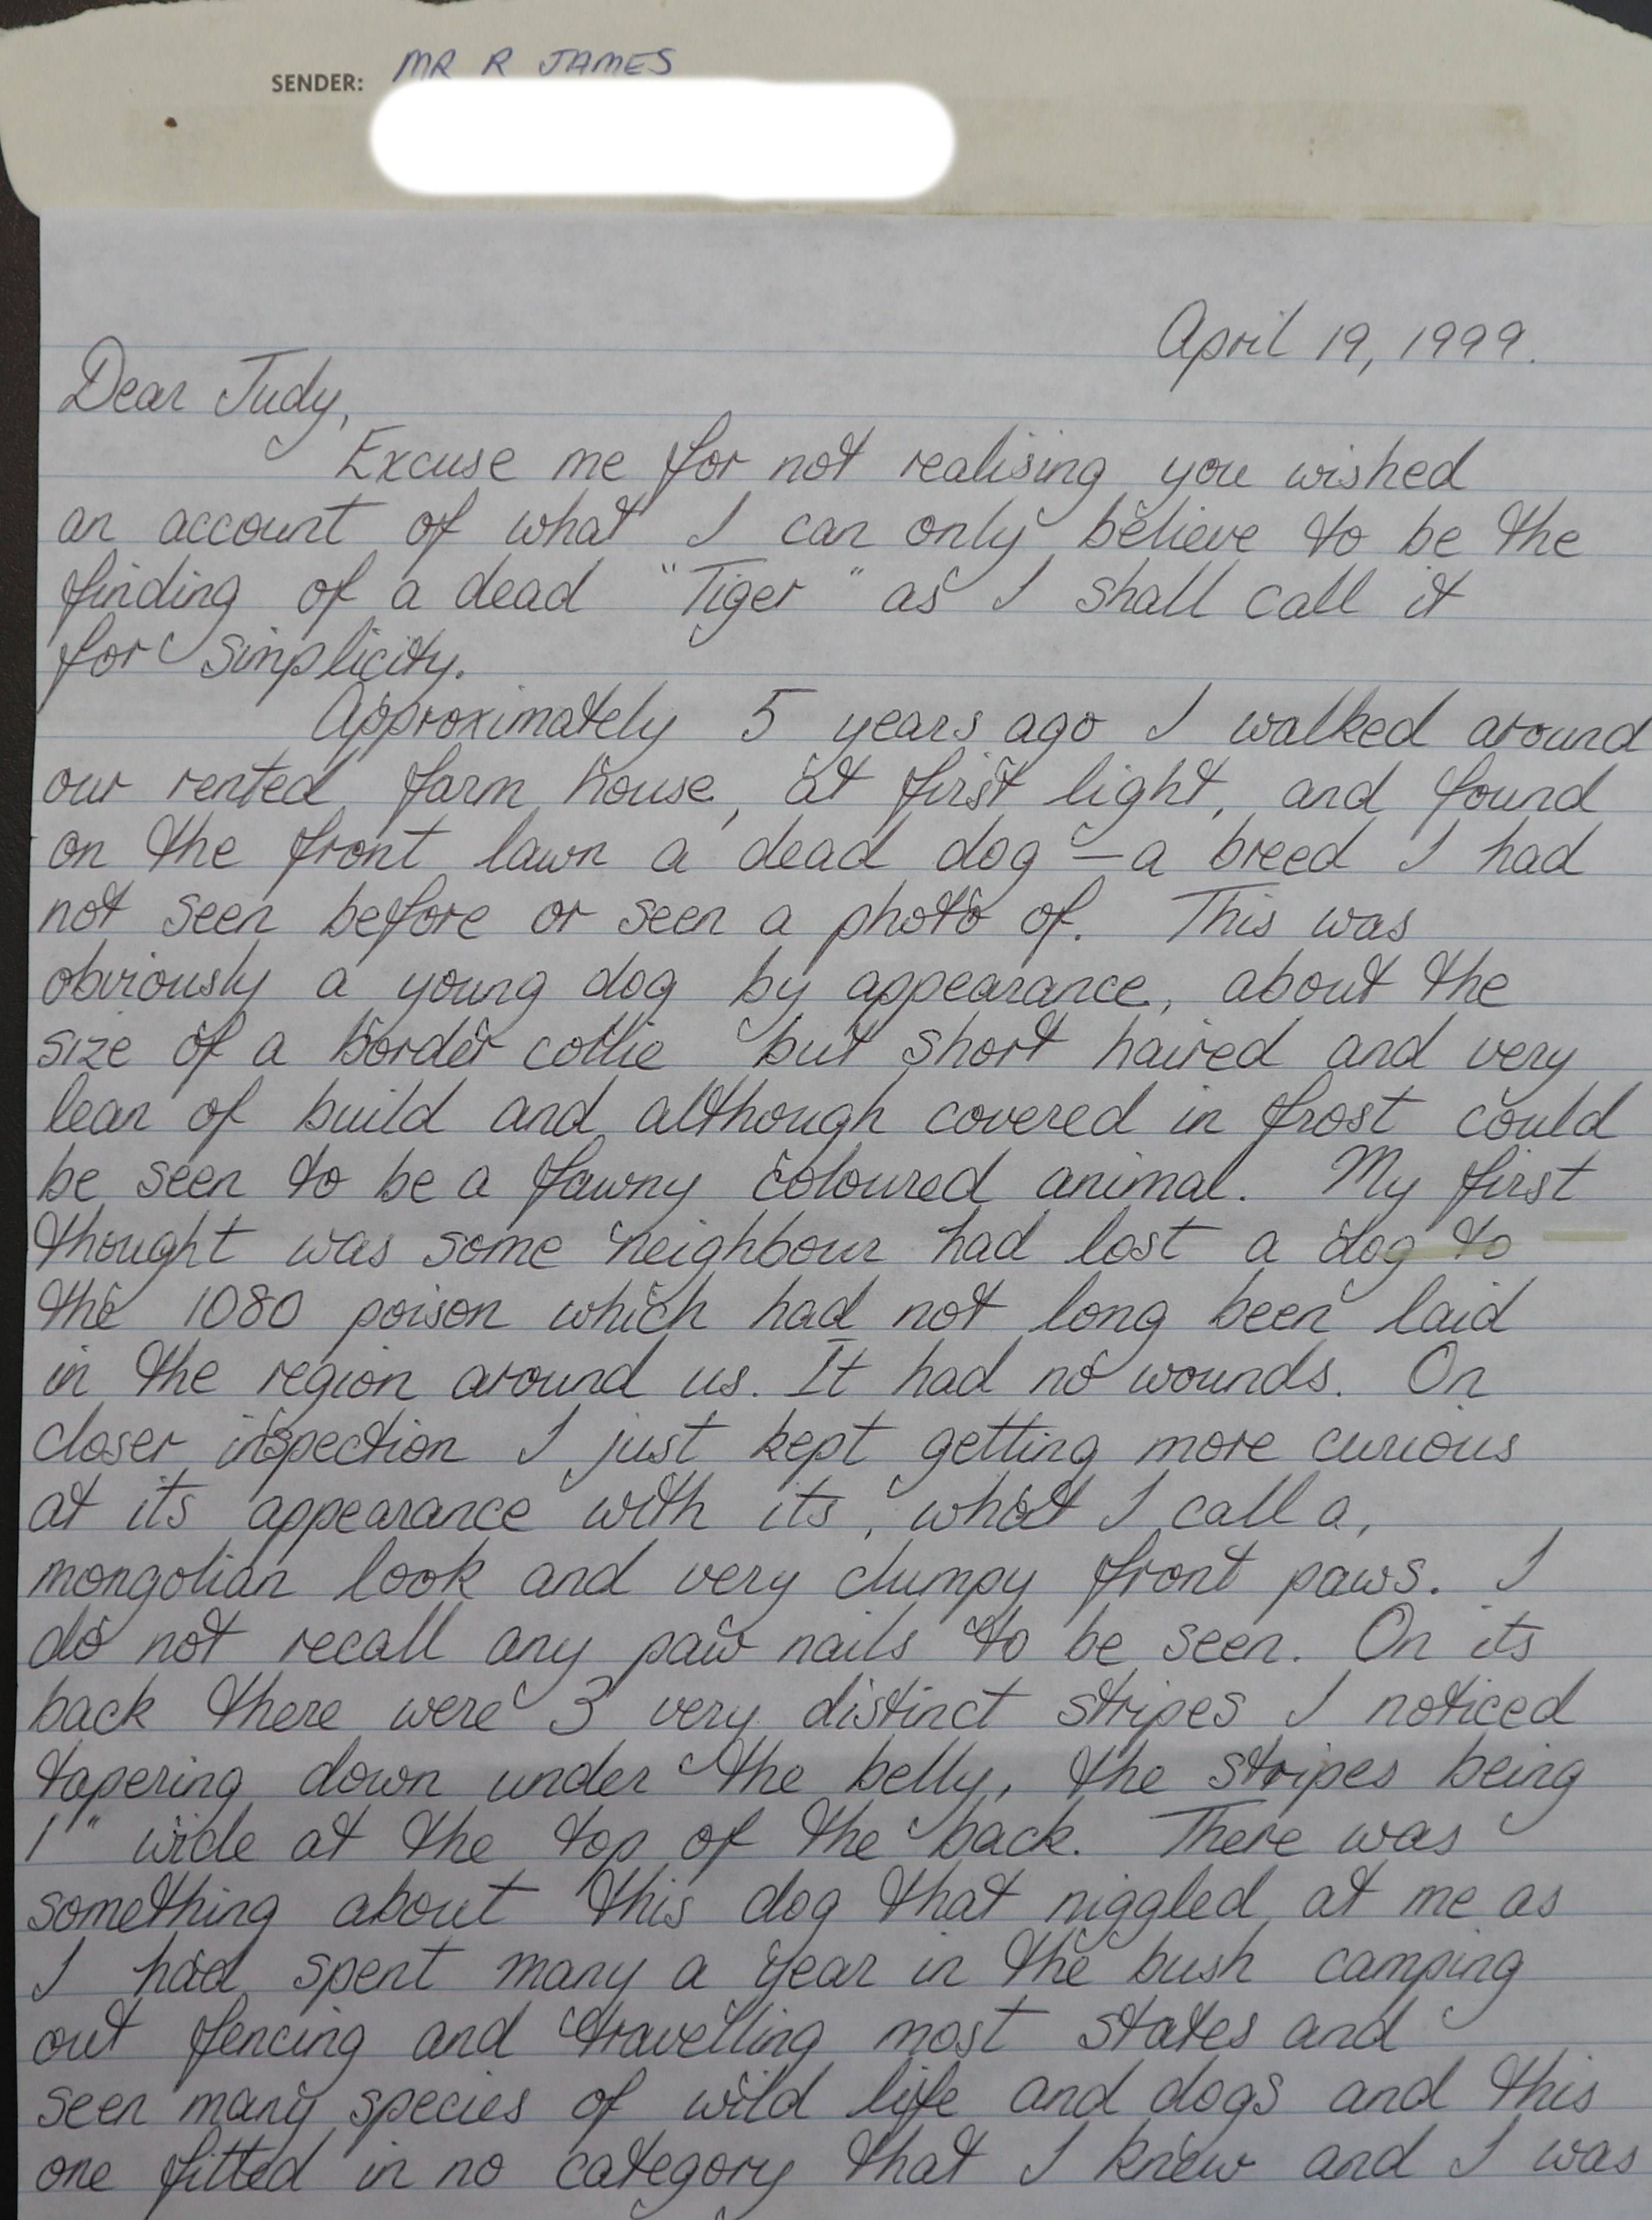 SENDER: MR R JAMES
April 19, 1999.
Dear Judy,
Excuse me for not realising you wished
an account of what I can only believe to be the
finding of a dead "Tiger" as I shall call it
for simplicity.
Approximately 5 years ago I walked around
our rented farm house, at first light, and found
on the front lawn a dead dog - a breed I had
not seen before or seen a photo of. This was
obviously a young dog by appearance, about the
size of a border collie but short haired and very
lean of build and although covered in frost could
be seen to be a fawny coloured animal. My first
thought was some neighbour had lost a dog to
the 1080 poison which had not long been laid
in the region around us. It had no wounds. On
closer inspection I just kept getting more curious
at its appearance with its, what I call a,
mongolian look and very clumpy front paws. I
do not recall any paw nails to be seen. On its
back there were 3 very distinct stripes I noticed
tapering down under the belly, the stripes being
1" wide at the top of the back. There was
something about this dog that niggled at me as
I had spent many a year in the bush camping
out fencing and travelling most states and
seen many species of wild life and dogs and this
one fitted in no category that I knew and I was